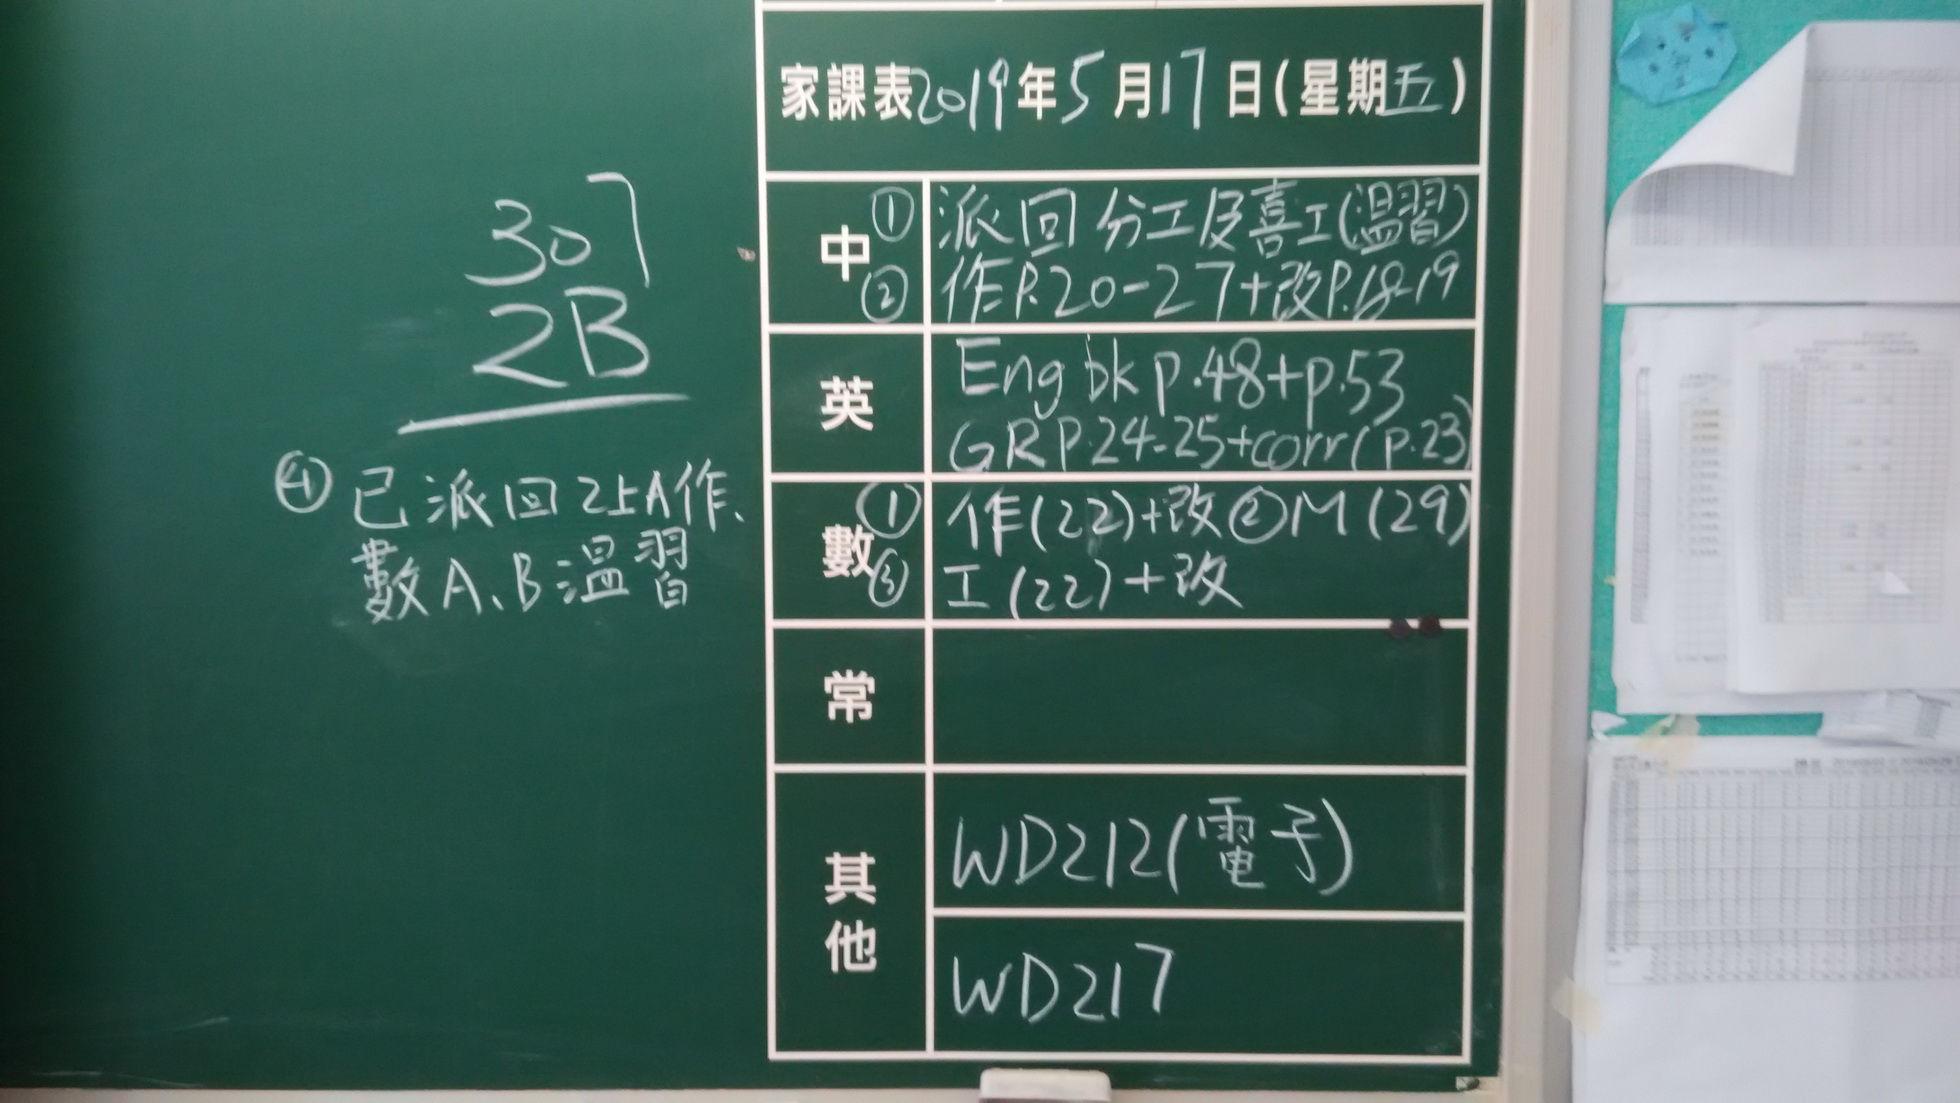 家課表2019年5月17日(星期五)
307
2B
④已派回2上A作、
數A、B溫習
中
①派回分工及喜工(溫習)
②作P.20-27+改P.18-19
英
Eng bk p.48+p.53
GR P.24-25+corr(p.23)
數
①作(22)+改②M(29)
③工(22)+改
常
其他
WD212(電子)
WD217